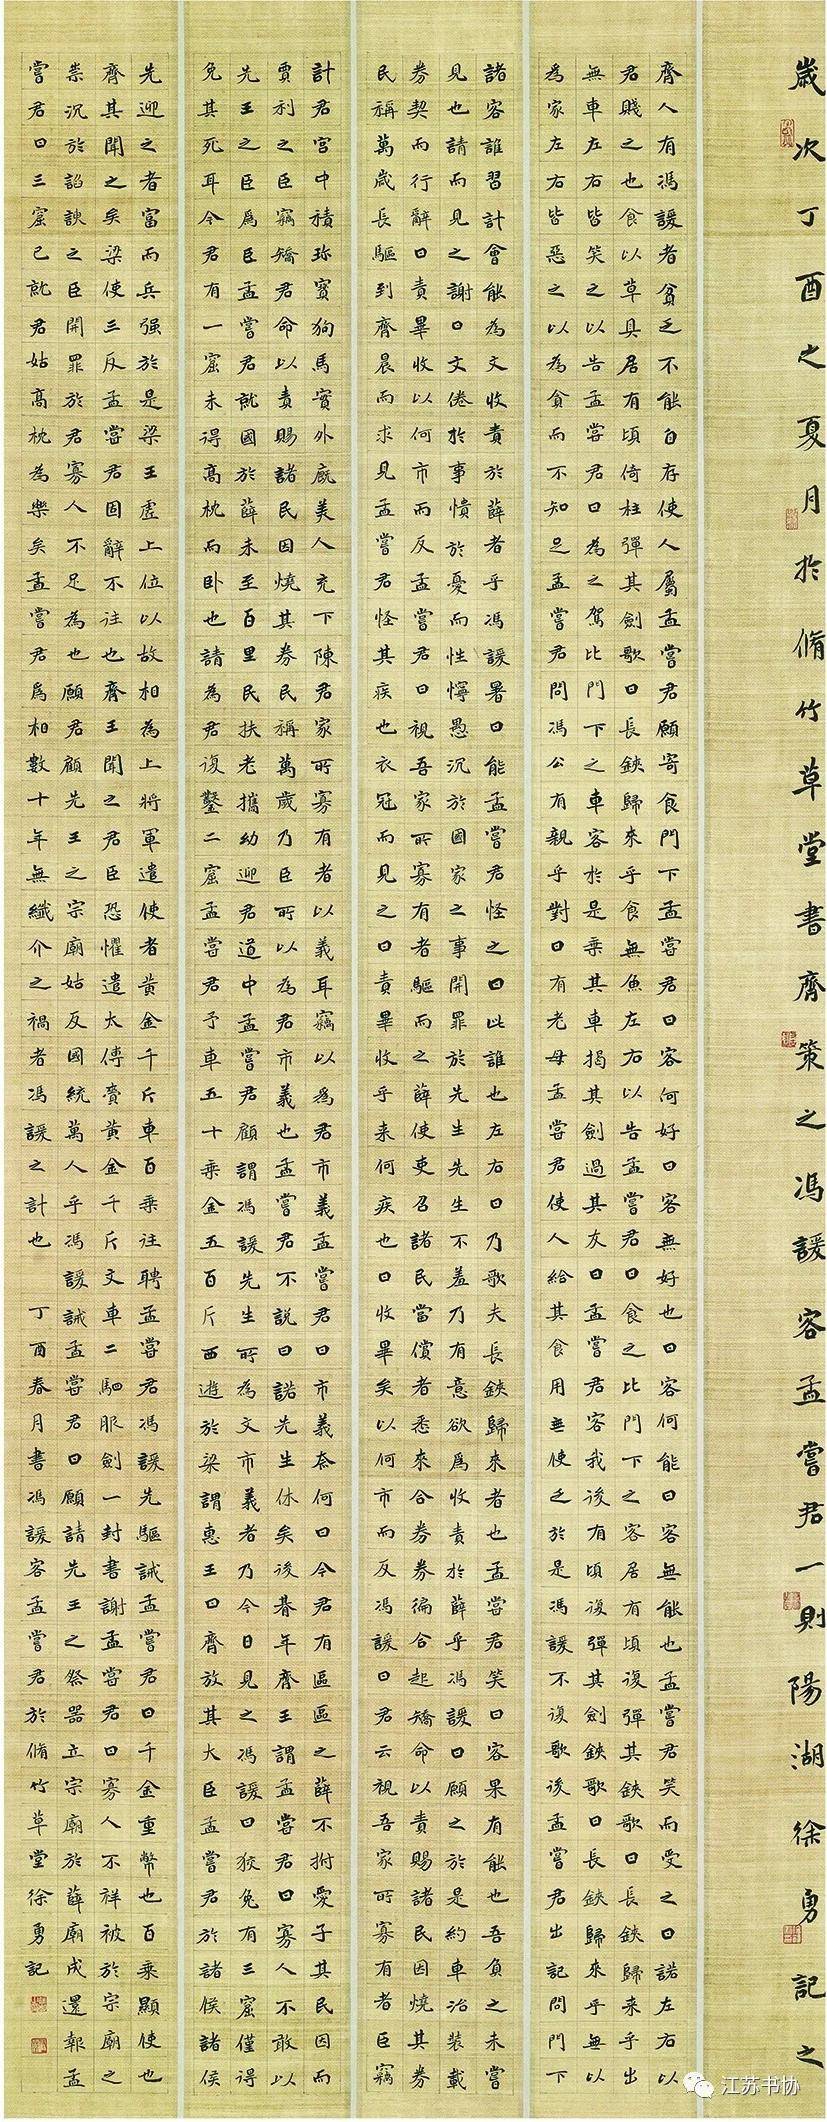 歲次丁酉之夏月於脩竹草堂書齊策之馮諼客孟嘗君一則陽湖徐勇記之
齊人有馮諼者貧乏不能自存使人屬孟嘗君願寄食門下孟嘗君曰客何好曰客無好也曰客何能曰客無能也孟嘗君笑而受之曰諾左右以
君賤之也食以草具居有頃倚柱彈其劍歌曰長鋏歸來乎食無魚左右以告孟嘗君曰食之比門下之客居有頃復彈其鋏歌曰長鋏歸来乎出
無車左右皆笑之以告孟嘗君曰為之駕比門下之車客於是乘其車揭其劍過其友曰孟嘗君客我後有頃復彈其劍鋏歌曰長鋏歸來乎無以
為家左右皆惡之以為貪而不知足孟嘗君問馮公有親乎對曰有老母孟嘗君使人給其食用無使乏於是馮諼不復歌後孟嘗君出記問門下
諸客誰習計會能為文收責於薛者乎馮諼署曰能孟嘗君怪之曰此誰也左右曰乃歌夫長鋏歸來者也孟嘗君笑曰客果有能也吾負之未嘗
見也請而見之謝曰文倦於事憒於憂而性懧愚沉於國家之事開罪於先生先生不羞乃有意欲爲收責於薛乎馮諼曰願之於是約車治裝載
券契而行辭曰責畢收以何市而反孟嘗君曰視吾家所寡有者驅而之薛使吏召諸民當償者悉來合券券徧合起矯命以責賜諸民因燒其券
民稱萬歲長驅到齊晨而求見孟嘗君怪其疾也衣冠而見之曰責畢收乎来何疾也曰收畢矣以何市而反馮諼曰君云視吾家所寡有者臣竊
計君宮中積珍寶狗馬實外廄美人充下陳君家所寡有者以義耳竊以爲君市義孟嘗君曰市義奈何曰今君有區區之薛不拊愛子其民因而
賈利之臣竊矯君命以責賜諸民因燒其券民稱萬歲乃臣所以為君市義也孟嘗君不說曰諾先生休矣後朞年齊王謂孟嘗君曰寡人不敢以
先王之臣爲臣孟嘗君就國於薛未至百里民扶老攜幼迎君道中孟嘗君顧謂馮諼先生所為文市義者乃今日見之馮諼曰狡兔有三窟僅得
免其死耳今君有一窟未得高枕而卧也請為君復鑿二窟孟嘗君予車五十乘金五百斤西遊於梁謂惠王曰齊放其大臣孟嘗君於諸侯諸侯
先迎之者富而兵强於是梁王虛上位以故相為上將軍遣使者黄金千斤車百乘往聘孟嘗君馮諼先驅誡孟嘗君曰千金重幣也百乘顯使也
齊其聞之矣梁使三反孟嘗君固辭不往也齊王聞之君臣恐懼遣太傅賫黄金千斤文車二駟服劍一封書謝孟嘗君曰寡人不祥被於宗廟之
祟沉於諂諛之臣開罪於君寡人不足為也願君顧先王之宗廟姑反國統萬人乎馮諼誡孟嘗君曰願請先王之祭器立宗廟於薛廟成還報孟
嘗君曰三窟已就君姑高枕為樂矣孟嘗君爲相數十年無纖介之禍者馮諼之計也 丁酉春月書馮諼客孟嘗君於脩竹草堂徐勇記
江苏书协